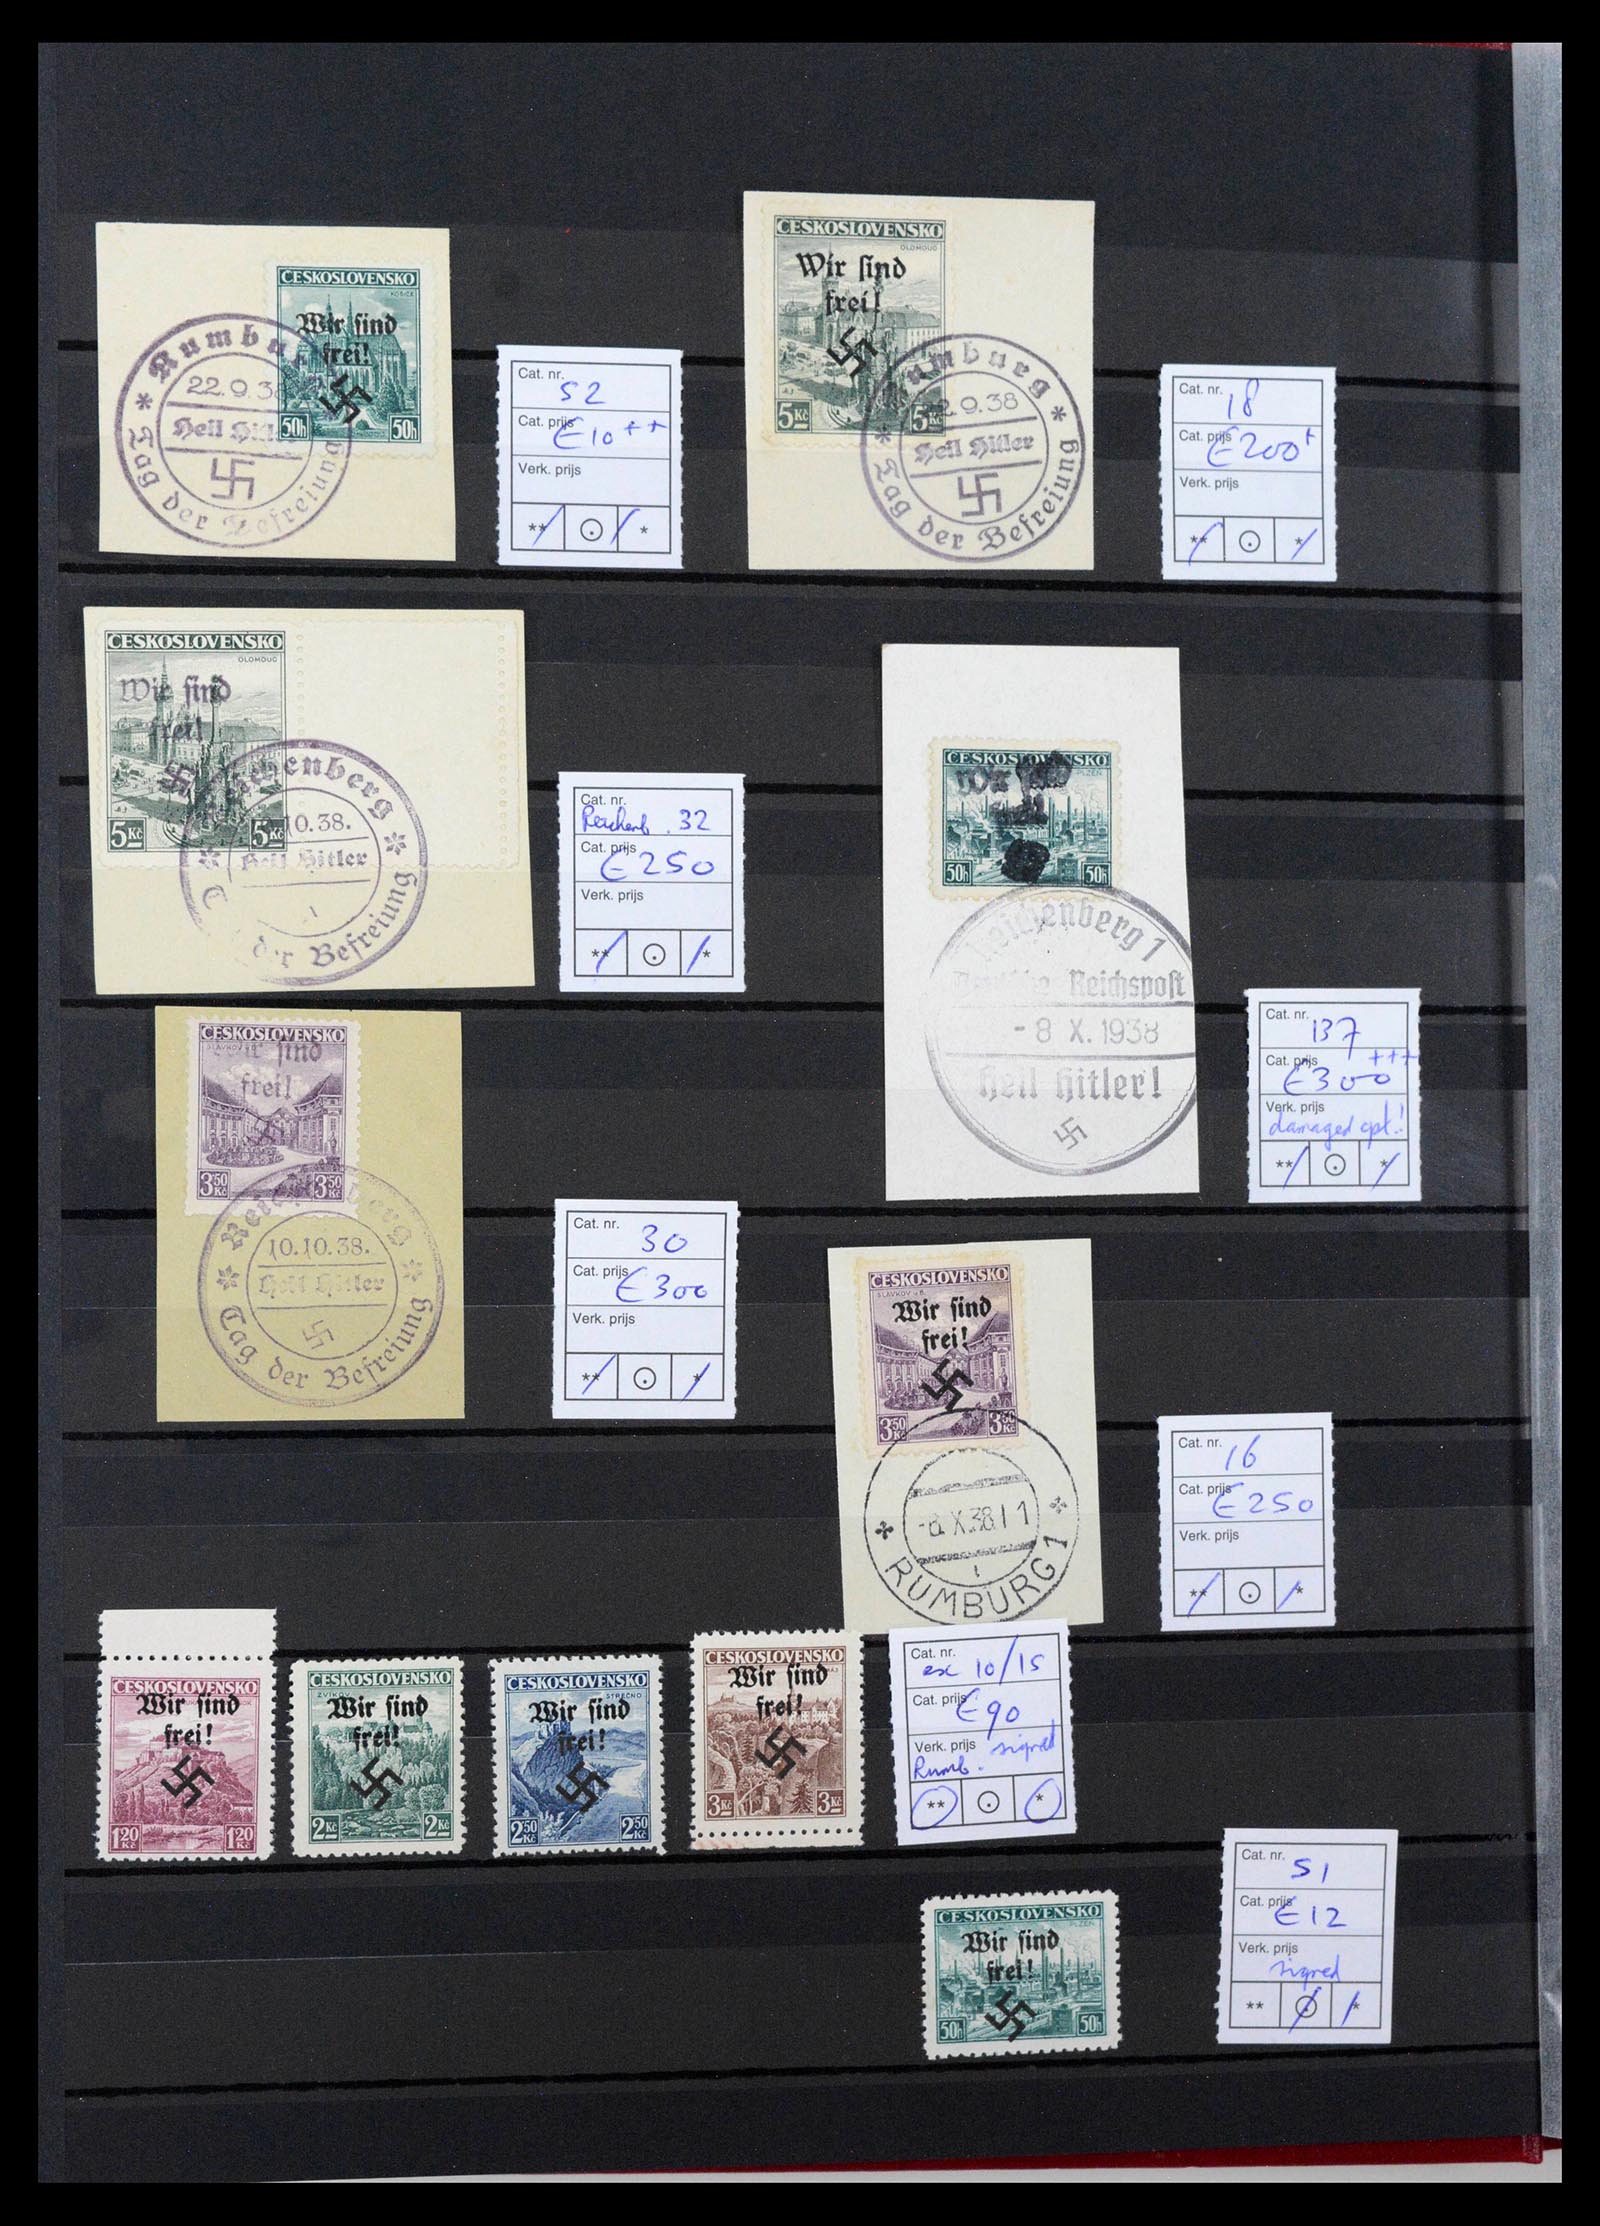 CESKOSLOVENSKO
KOSICE
Wir sind
frei!
50h 50h
Rumbu
22.9.38
Heil Hitler
* Tag der Befreiung
Cat. nr.
52
Cat. prijs
€10++
Verk. prijs
** *
CESKOSLOVENSKO
OLOMOUC
Wir sind
frei!
5Kč 5Kč
umburg *
2.9.38
Heil Hitler
* Tag der Befreiung
Cat. nr.
18
Cat. prijs
€200+
Verk. prijs
** *
CESKOSLOVENSKO
OLOMOUC
Wir sind
frei!
5Kč 5Kč
chenberg
10.38.
Heil Hitler
der Befreiung
Cat. nr.
Reichenb. 32
Cat. prijs
€250
Verk. prijs
** *
CESKOSLOVENSKO
PLZEN
Wir
50h 50h
Reichenberg 1
Deutsche Reichspost
-8 X. 1938
Heil Hitler!
Cat. nr.
137
Cat. prijs
€300+++
Verk. prijs
damaged opt.!
** *
CESKOSLOVENSKO
SLAVKOV u B.
Wir sind
frei!
350 Kč 350 Kč
10.10.38.
Heil Hitler
Tag der Befreiung
Cat. nr.
30
Cat. prijs
€300
Verk. prijs
** *
CESKOSLOVENSKO
SLAVKOV u B.
Wir sind
frei!
350 Kč 350 Kč
-8. X.38.11
* RUMBURG 1 *
Cat. nr.
16
Cat. prijs
€250
Verk. prijs
** *
CESKOSLOVENSKO
Wir sind
frei!
1.20 Kč 1.20 Kč
CESKOSLOVENSKO
ZVIKOV
Wir sind
frei!
2 Kč 2 Kč
CESKOSLOVENSKO
STREČNO
Wir sind
frei!
2.50 Kč 2.50 Kč
CESKOSLOVENSKO
Wir sind
frei!
3 Kč 3 Kč
Cat. nr.
ex 10/15
Cat. prijs
€90
Verk. prijs signed
Rumb.
** *
CESKOSLOVENSKO
PLZEN
Wir sind
frei!
50h 50h
Cat. nr.
51
Cat. prijs
€12
Verk. prijs
signed
** *